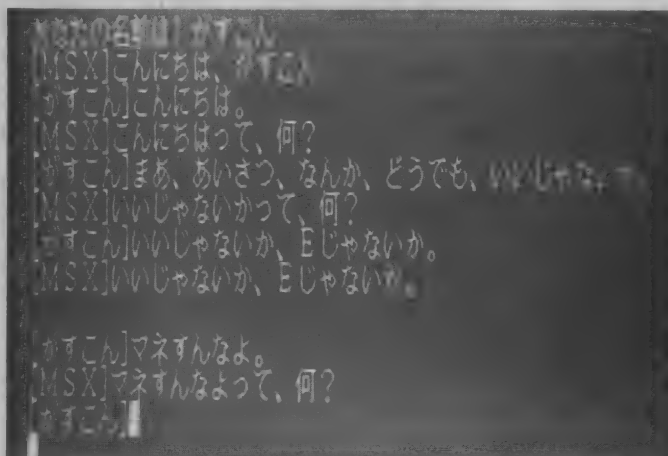 あなたの名前は? がすこん
[MSX]こんにちは、がすこん
[がすこん]こんにちは。
[MSX]こんにちはって、何?
[がすこん]まあ、あいさつ、なんか、どうでも、いいじゃない
[MSX]いいじゃないかって、何?
[がすこん]いいじゃないか、Eじゃないか。
[MSX]いいじゃないか、Eじゃないか。
[がすこん]マネすんなよ。
[MSX]マネすんなよって、何?
[がすこん]